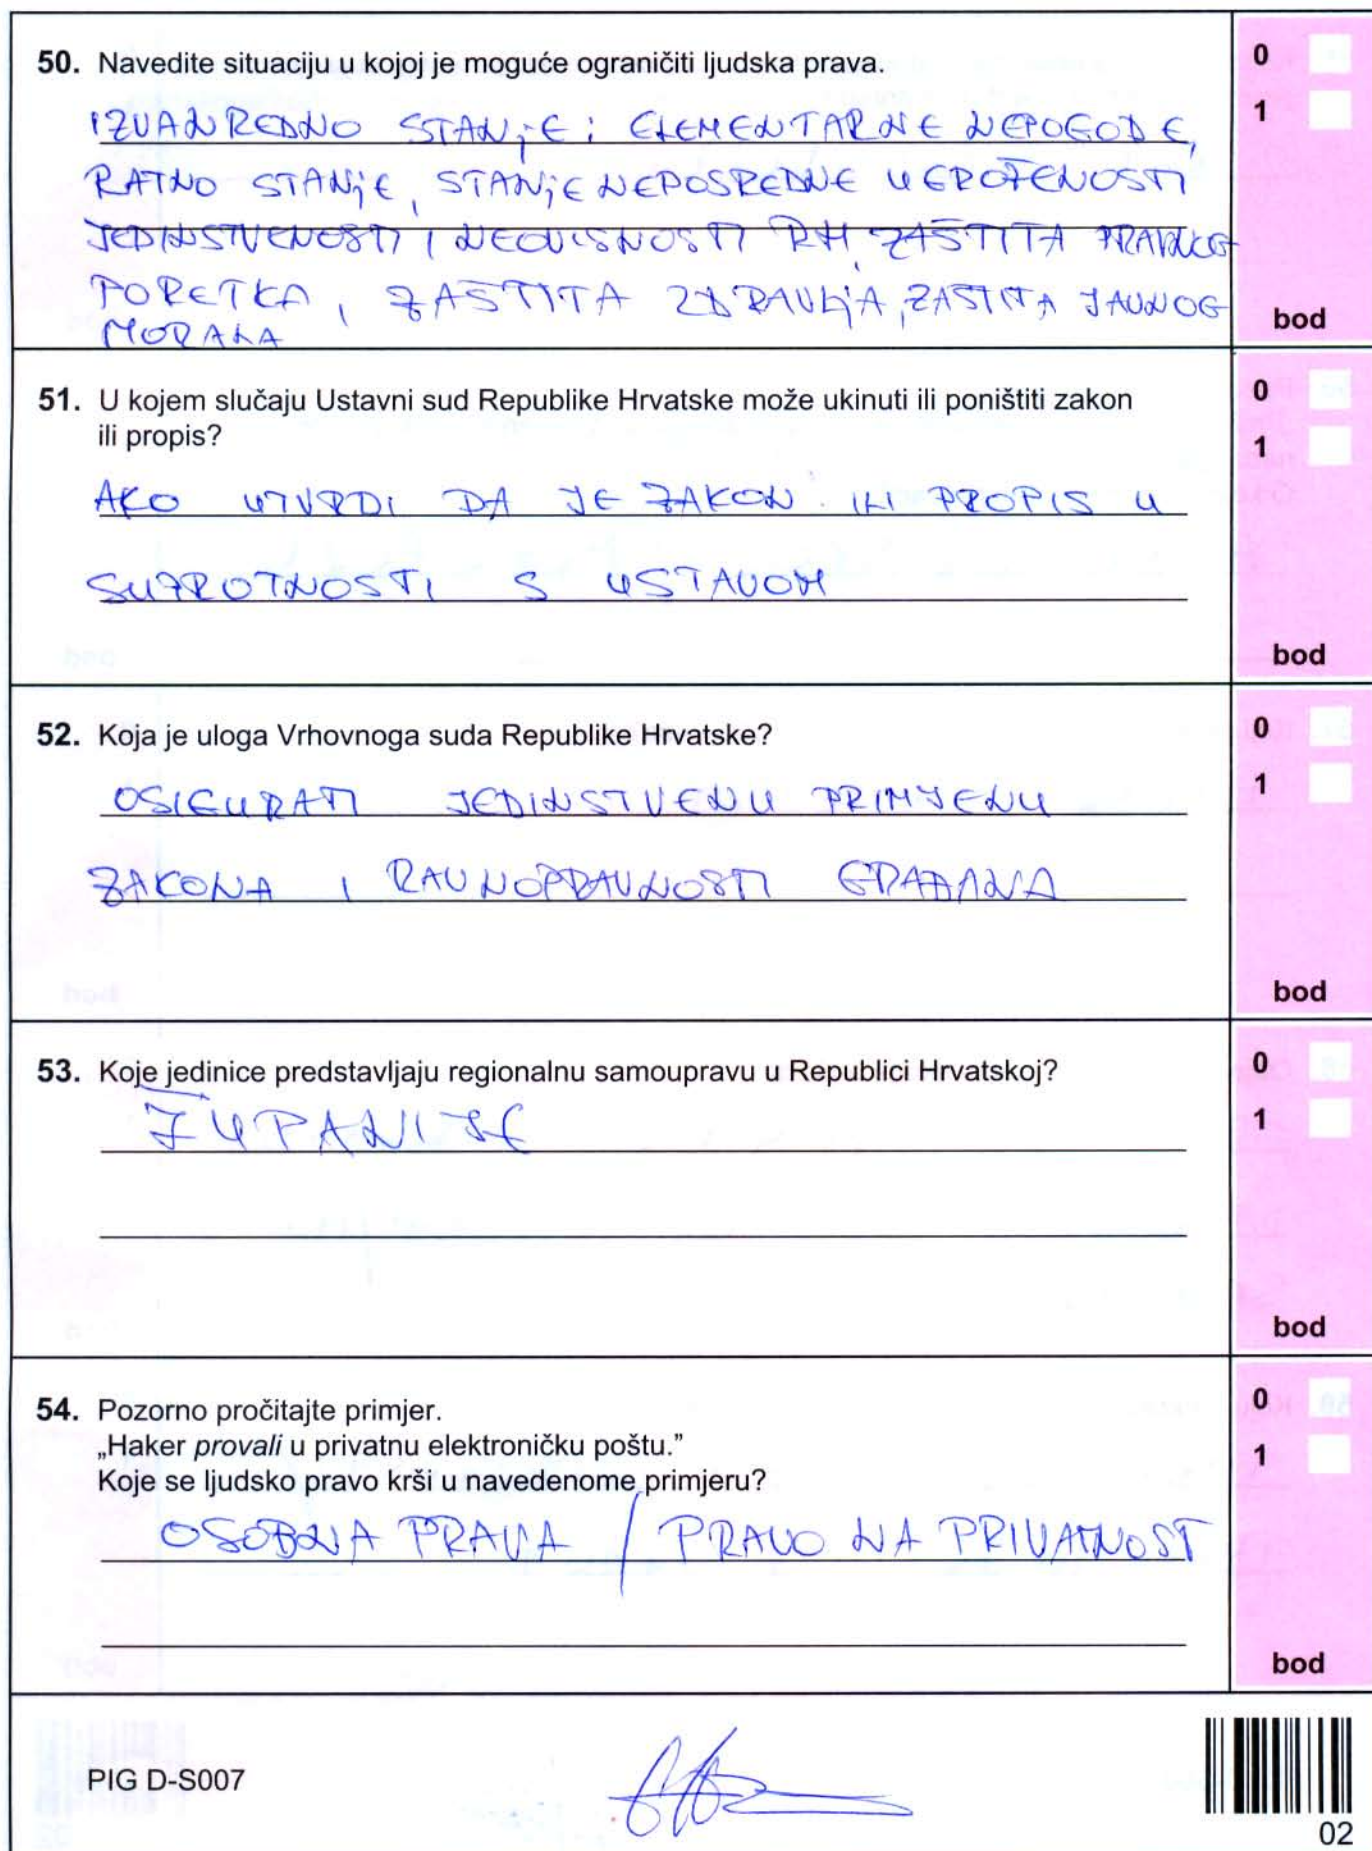 50. Navedite situaciju u kojoj je moguće ograničiti ljudska prava.
0
1
IZVANREDNO STANjE: ELEMENTARNE NEPOGODE,
RATNO STANjE, STANjE NEPOSREDNE UGROŽENOSTI
JEDINSTVENOSTI I NEOVISNOSTI RH, ZAŠTITA PRAVNOG
PORETKA, ZAŠTITA ZDRAVLjA, ZAŠTITA JAVNOG
MORALA
bod
51. U kojem slučaju Ustavni sud Republike Hrvatske može ukinuti ili poništiti zakon
ili propis?
0
1
AKO UTVRDI DA JE ZAKON ILI PROPIS U
SUPROTNOSTI S USTAVOM
bod
52. Koja je uloga Vrhovnoga suda Republike Hrvatske?
0
1
OSIGURATI JEDINSTVENU PRIMJENU
ZAKONA I RAVNOPRAVNOSTI GRAĐANA
bod
53. Koje jedinice predstavljaju regionalnu samoupravu u Republici Hrvatskoj?
0
1
ŽUPANIJE
bod
54. Pozorno pročitajte primjer.
„Haker provali u privatnu elektroničku poštu.”
Koje se ljudsko pravo krši u navedenome primjeru?
0
1
OSOBNA PRAVA / PRAVO NA PRIVATNOST
bod
PIG D-S007
02